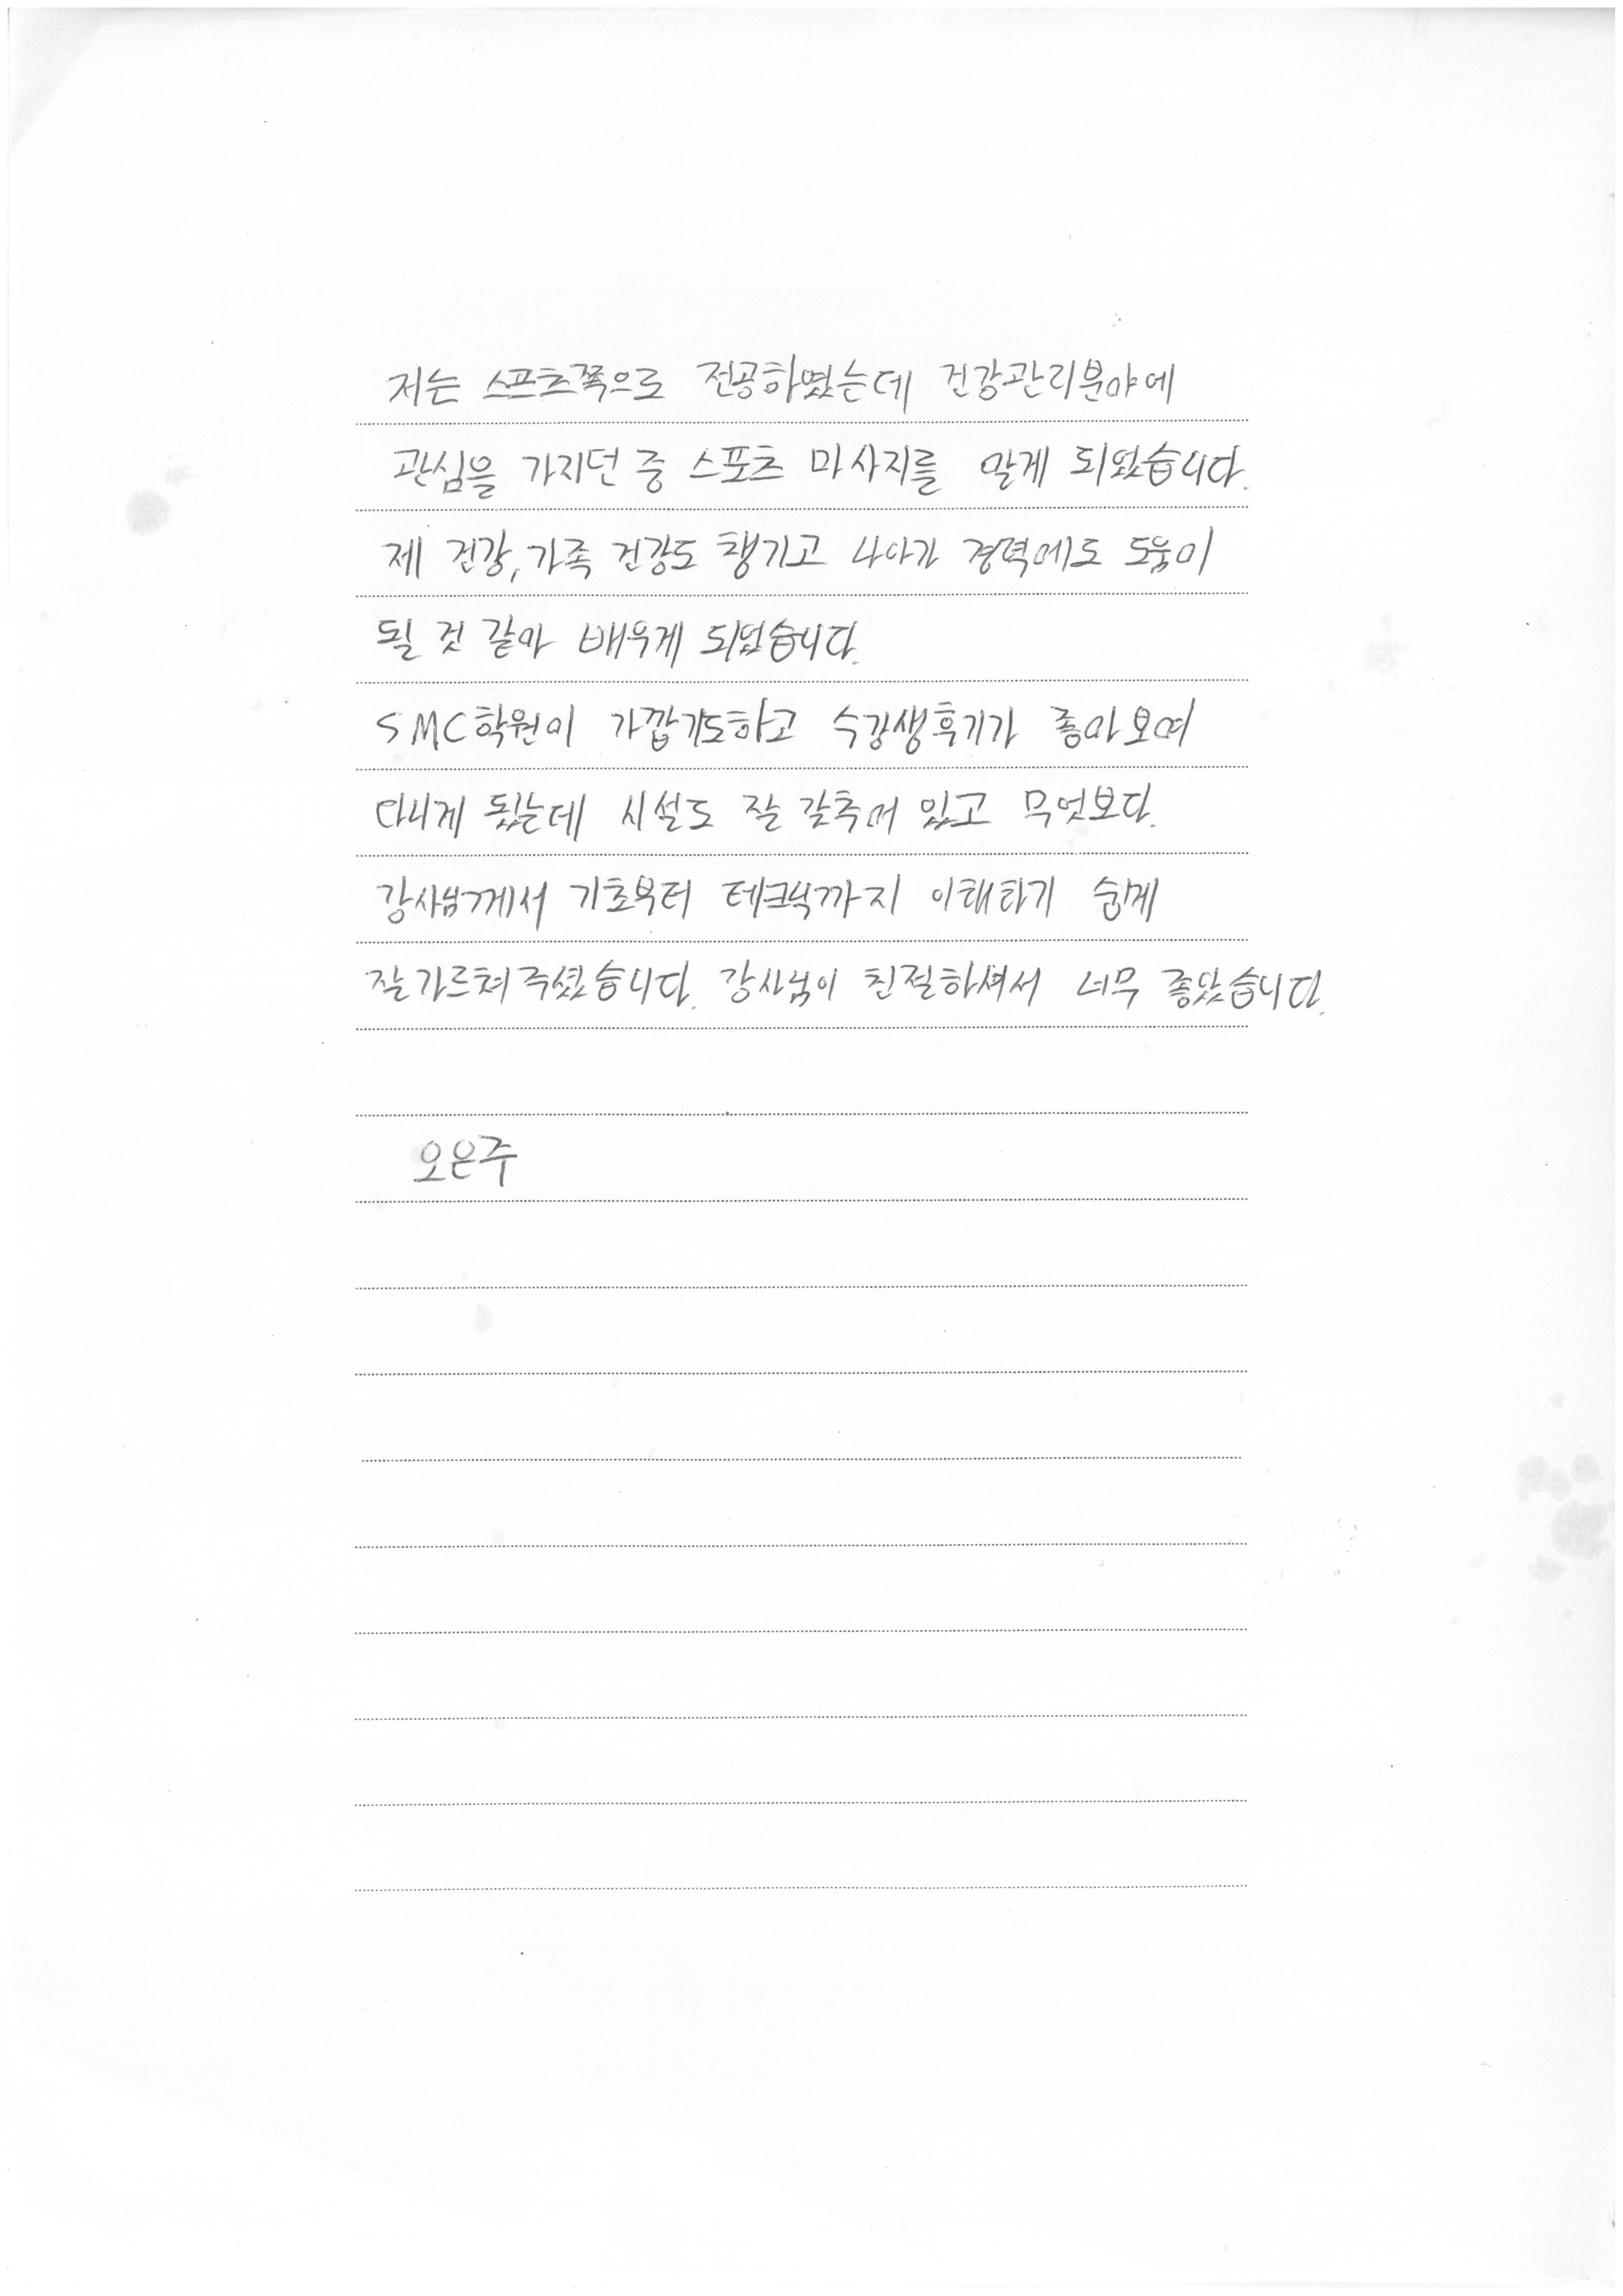 저는 스포츠쪽으로 전공하였는데 건강관리분야에
관심을 가지던 중 스포츠 마사지를 알게 되었습니다.
제 건강, 가족 건강도 챙기고 나아가 경력에도 도움이
될 것 같아 배우게 되었습니다.
SMC학원이 가깝기도하고 수강생후기가 좋아보여
다니게 됬는데 시설도 잘 갖추어 있고 무엇보다.
강사님께서 기초부터 테크닉까지 이해하기 쉽게
잘 가르쳐 주셨습니다. 강사님이 친절하셔서 너무 좋았습니다.
오은주